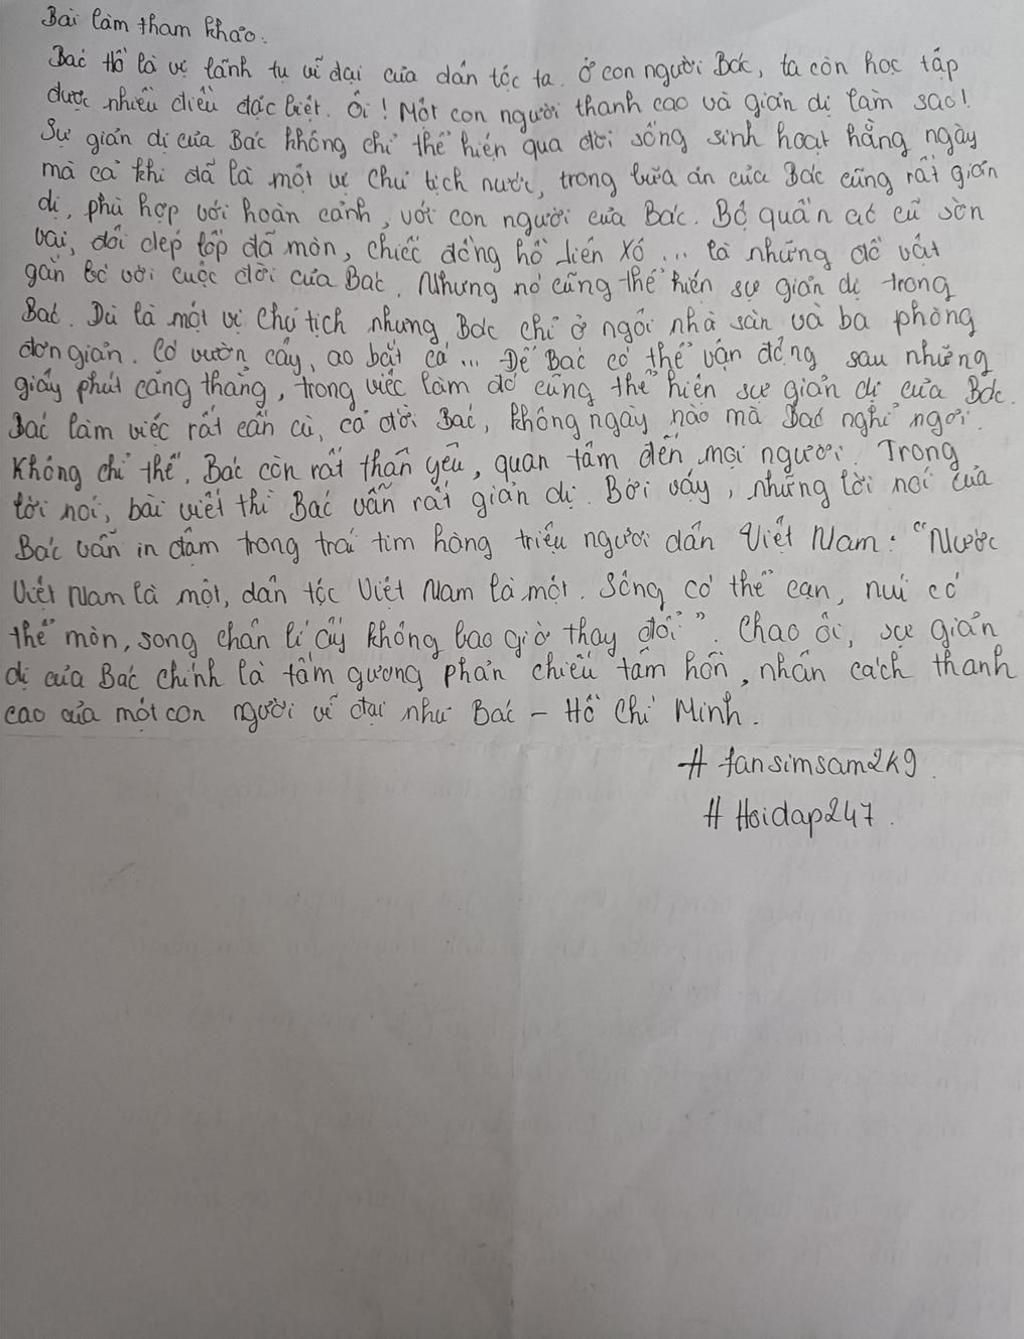 Bài làm tham khảo.
Bác Hồ là vị lãnh tụ vĩ đại của dân tộc ta. Ở con người Bác, ta còn học tập
được nhiều điều đặc biệt. Ôi! Một con người thanh cao và giản dị làm sao!
Sự giản dị của Bác không chỉ thể hiện qua đời sống sinh hoạt hằng ngày
mà cả khi đã là một vị Chủ tịch nước, trong bữa ăn của Bác cũng rất giản
dị, phù hợp với hoàn cảnh, với con người của Bác. Bộ quần áo cũ sờn
vai, đôi dép lốp đã mòn, chiếc đồng hồ Liên Xô ... là những đồ vật
gắn bó với cuộc đời của Bác. Nhưng nó cũng thể hiện sự giản dị trong
Bác. Dù là một vị Chủ tịch nhưng Bác chỉ ở ngôi nhà sàn và ba phòng
đơn giản. Có vườn cây, ao bắt cá ... Để Bác có thể vận động sau những
giây phút căng thẳng, trong việc làm đó cũng thể hiện sự giản dị của Bác.
Bác làm việc rất cần cù, cả đời Bác, không ngày nào mà Bác nghỉ ngơi.
Không chỉ thế, Bác còn rất thân yêu, quan tâm đến mọi người. Trong
lời nói, bài viết thì Bác vẫn rất giản dị. Bởi vậy, những lời nói của
Bác vẫn in đậm trong trái tim hàng triệu người dân Việt Nam: "Nước
Việt Nam là một, dân tộc Việt Nam là một. Sông có thể cạn, núi có
thể mòn, song chân lí ấy không bao giờ thay đổi". Chao ôi, sự giản
dị của Bác chính là tấm gương phản chiếu tâm hồn, nhân cách thanh
cao của một con người vĩ đại như Bác - Hồ Chí Minh.
# fansimsam2k9.
# Hoidap247.